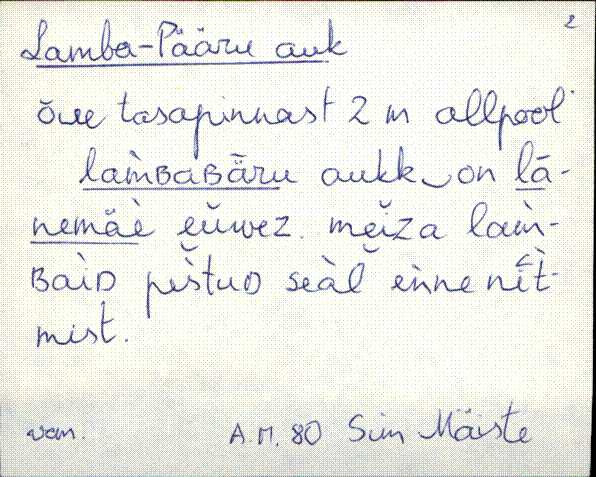 2
Lamba-Pääru auk
õue tasapinnast 2 m allpool
lam̀ʙaʙāru aukk‿on lǟ-
nemäè eŭwez. meĭza lam̀-
ʙaìᴅ pes̆tuᴅ seàl̆ eǹne nīt̀-
mist.
van. A.M. 80 Siim Mäiste